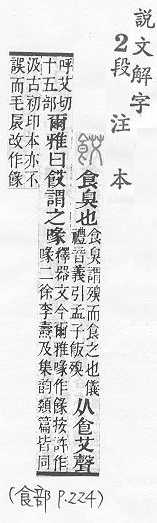 說文解字
2段注本
餀 食臭也 食臭謂殠而食之也儀禮音義引孟子飯殠 从食艾聲
呼艾切十五部 爾雅曰餀謂之喙 釋器文今爾雅喙作餯按許作喙二徐李燾及集韵類篇皆同
汲古初印本亦不誤而毛扆改作餯
(食部 P.224)